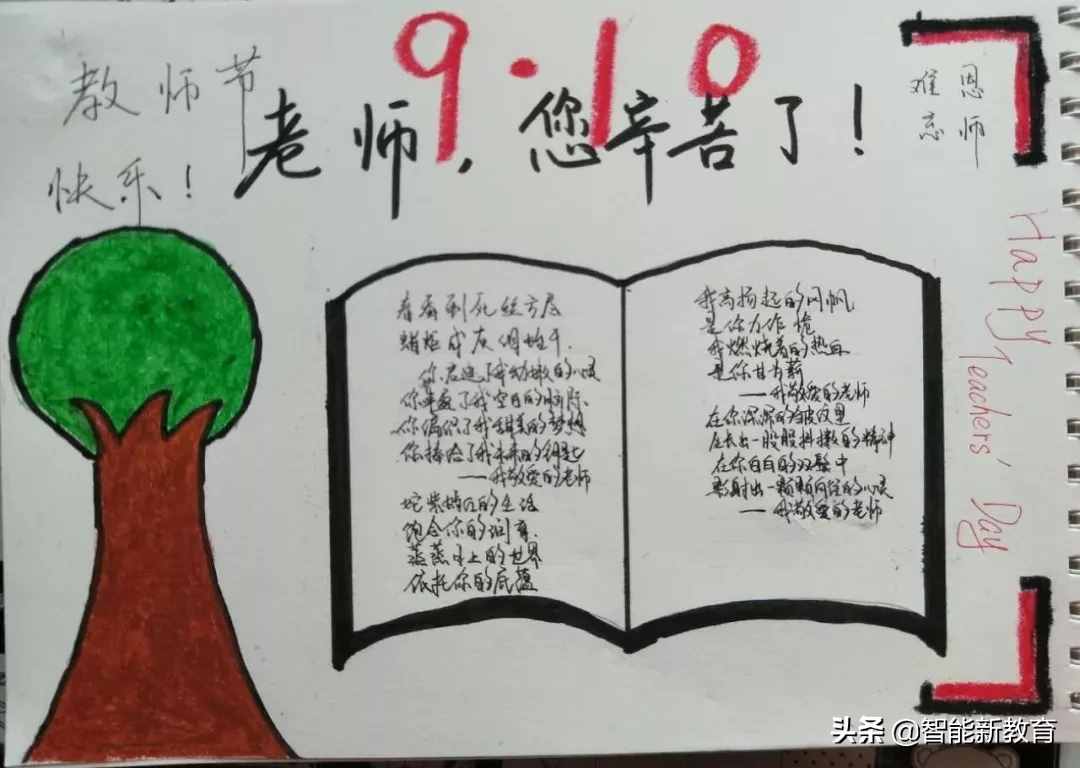 9·10
教师节
快乐！
老师，您辛苦了！
恩师
难忘
Happy Teachers' Day
春蚕到死丝方尽
蜡炬成灰泪始干.
你启迪了我幼嫩的心灵
你丰盈了我空白的脑际、
你编织了我甜美的梦想
你捧给了我未来的钥匙
——我敬爱的老师
姹紫嫣红的生活
饱含你的润育.
蒸蒸日上的世界
依托你的底蕴
我高扬起的风帆
是你力作桅
我燃烧着的热血
是你甘为薪
——我敬爱的老师
在你深深的皱纹里
生长出一股股抖擞的精神
在你白白的双鬓中
影射出一颗颗向往的心灵
——我敬爱的老师
头条 @智能新教育